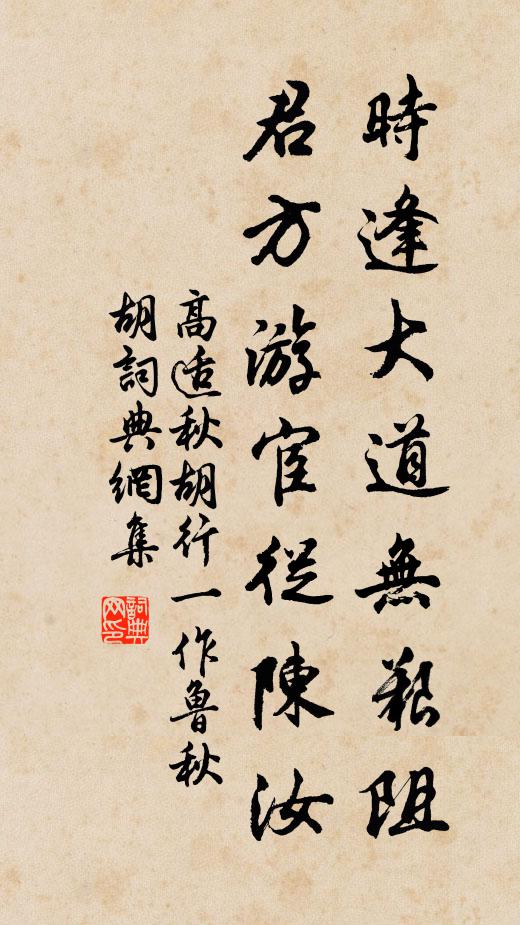 時逢大道無艱阻
君方游宦從陳汝
高适秋胡行一作魯秋
胡詞典網集
詞典網印